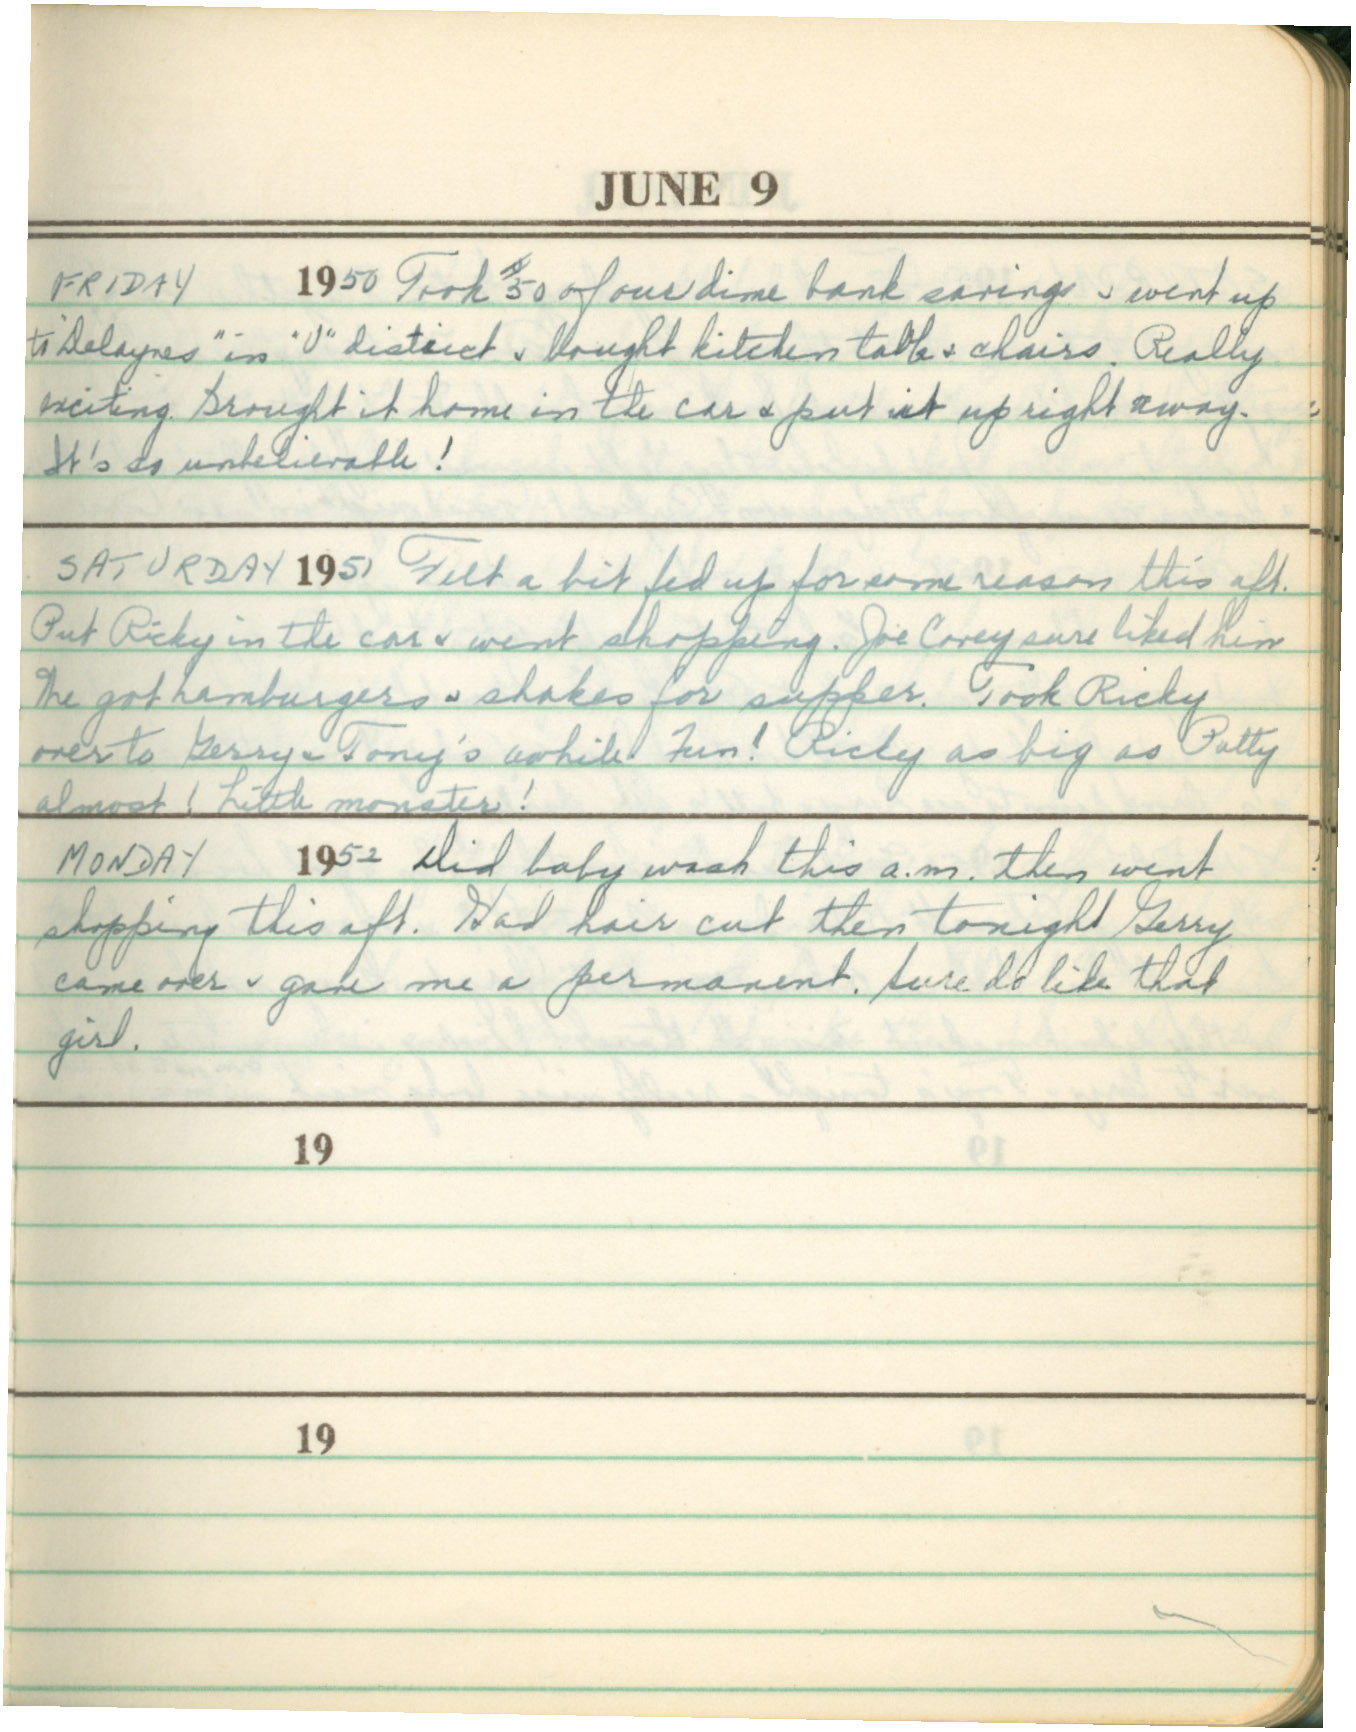 JUNE 9
FRIDAY 1950 Took $50 of our dime bank savings & went up
to "Delaynes" in "U" district & bought kitchen table & chairs. Really
exciting. Brought it home in the car & put it up right away.
It's so unbelievable!
SATURDAY 1951 Felt a bit fed up for some reason this aft.
Put Ricky in the car & went shopping. Joe Covey sure liked him
We got hamburgers & shakes for supper. Took Ricky
over to Gerry & Tony's awhile. Fun! Ricky as big as Patty
almost! Little monster!
MONDAY 1952 Did baby wash this a.m. then went
shopping this aft. Had hair cut then tonight Gerry
came over & gave me a permanent. Sure do like that
girl.
19
19